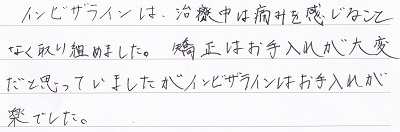 インビザラインは、治療中は痛みを感じること
なく取り組めました。矯正はお手入れが大変
だと思っていましたがインビザラインはお手入れが
楽でした。